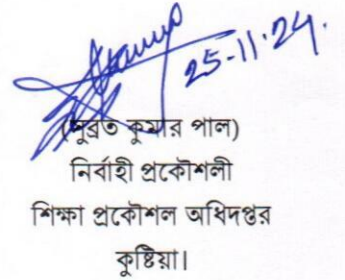 25-11-24.
(সুব্রত কুমার পাল)
নির্বাহী প্রকৌশলী
শিক্ষা প্রকৌশল অধিদপ্তর
কুষ্টিয়া।